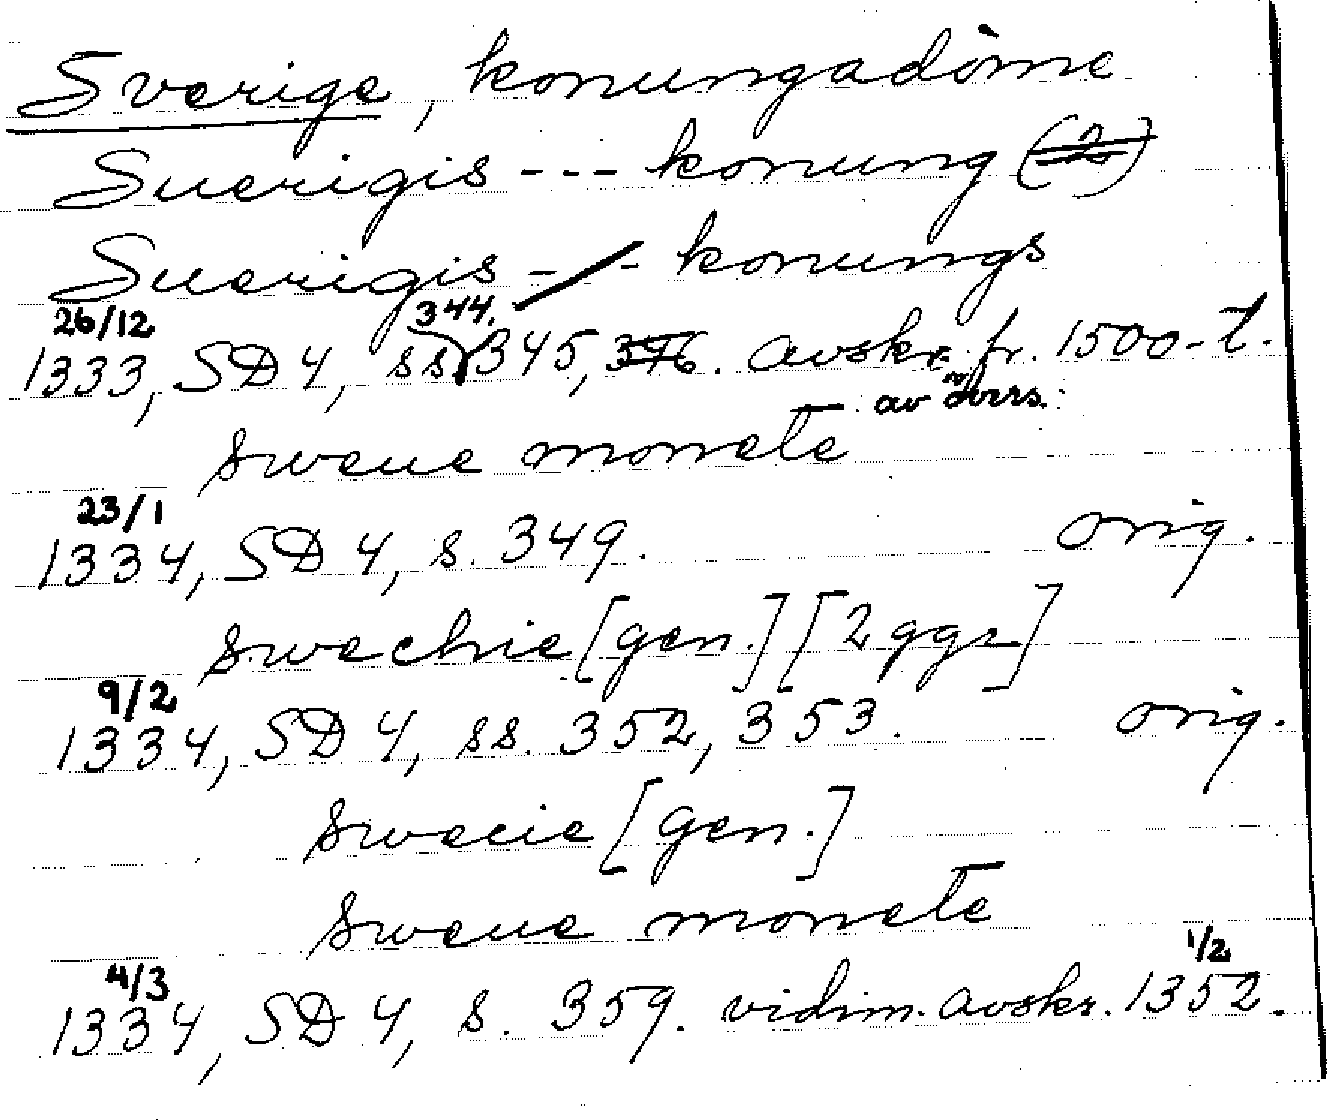 Sverige, konungadöme
Suerigis --- konung (2)
Suerigis -/- konungs
26/12 344.
1333, SD 4, ss 345, 346. avskr. fr. 1500-t.
av övers.
sweue monete
23/1
1334, SD 4, s. 349. orig.
swechie [gen.] [2 ggr]
9/2
1334, SD 4, ss. 352, 353. orig.
swecie [gen.]
sweue monete
4/3 1/2
1334, SD 4, s. 359. vidim. avskr. 1352.